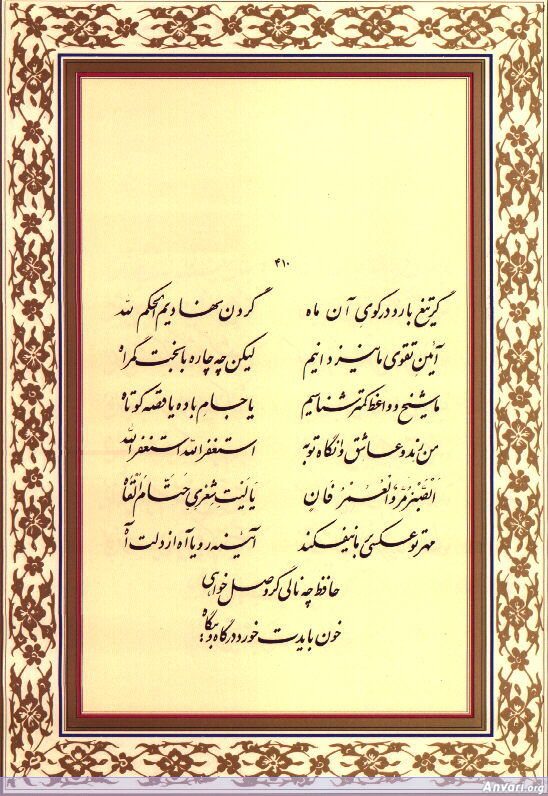 ۴۱۰
گر تیغ بارد در کوی آن ماه گردن نهادیم الحکم لله
آیین تقوی ما نیز دانیم لیکن چه چاره با بخت گمراه
ما شیخ و واعظ کمتر شناسیم یا جام باده یا قصه کوتاه
من رند و عاشق وانگاه توبه استغفرالله استغفرالله
الصبر مر و العمر فان یا لیت شعری حتام القاه
مهر تو عکسی بر ما نیفکند آیینه رویا آه از دلت آه
حافظ چه نالی گر وصل خواهی
خون بایدت خورد در گاه و بیگاه
Anvari.org